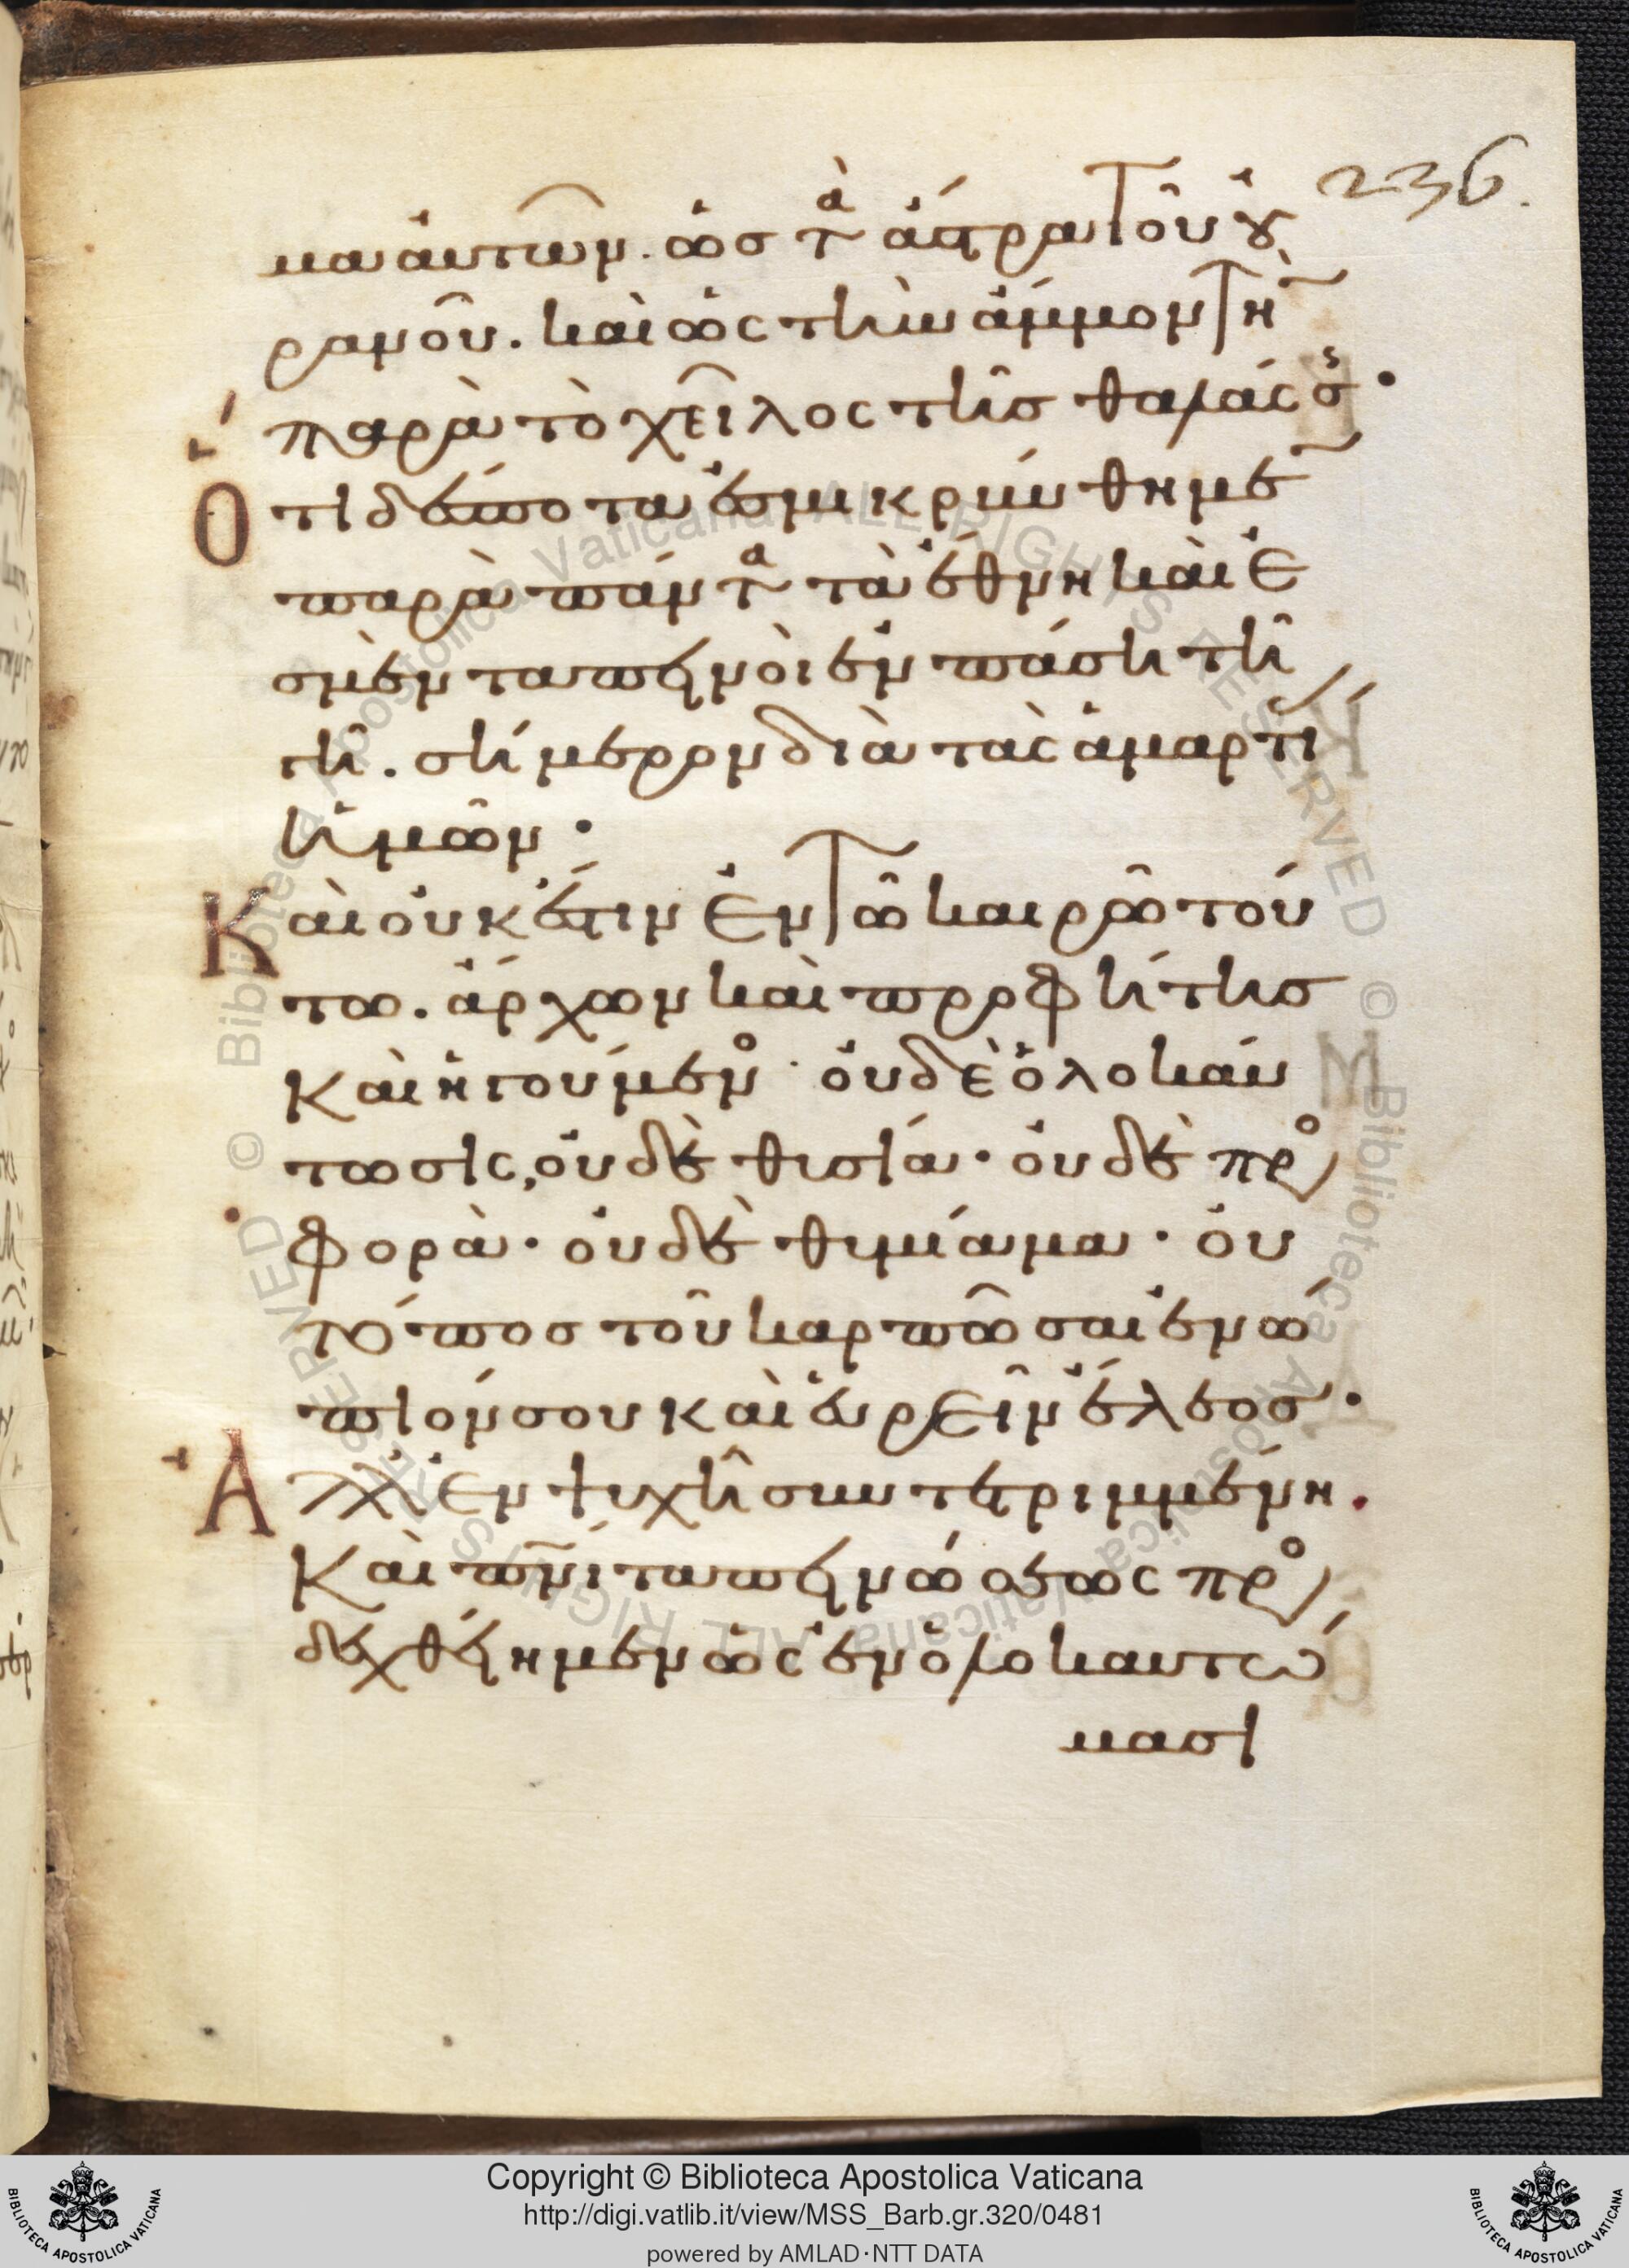 236.
μα ἀυτῶν. ὡσ τὰ ἄστρα τοῦ ὀυ
ρανοῦ. καὶ ὡς τὴν ἄμμον τὴν
παρὰ τὸ χεῖλος τῆσ θαλάσσης·
Ὅτι δέσποτα ἐσμικρύνθημεν
παρὰ πάντα τὰ ἔθνη καὶ ἐ
σμὲν ταπεινοὶ ἐν πάσῃ τῇ
γῇ. σήμερον διὰ τὰς ἁμαρτίας
ἡμῶν·
Καὶ ὀυκ ἔστιν ἐν τῶ καιρῶ τού
τω. ἄρχων καὶ προφήτησ
Καὶ ἡγούμενος· ὀυδὲ ὁλοκαύ
τωσις, ὀυδὲ θυσία· ὀυδὲ προσ
φορὰ· ὀυδὲ θυμίαμα· ὀυ
τόποσ τοῦ καρπῶσαι ἐνώ
πιόν σου καὶ ἑυρεῖν ἔλεοσ·
Ἀλλ' ἐν ψυχῆ συντετριμμένη.
Καὶ πνι ταπεινώσεως προσ
δεχθείημεν ὡς ἐν ὁλοκαυτώ
μασι
Copyright © Biblioteca Apostolica Vaticana
http://digi.vatlib.it/view/MSS_Barb.gr.320/0481
powered by AMLAD·NTT DATA
BIBLIOTECA APOSTOLICA VATICANA
BIBLIOTECA APOSTOLICA VATICANA